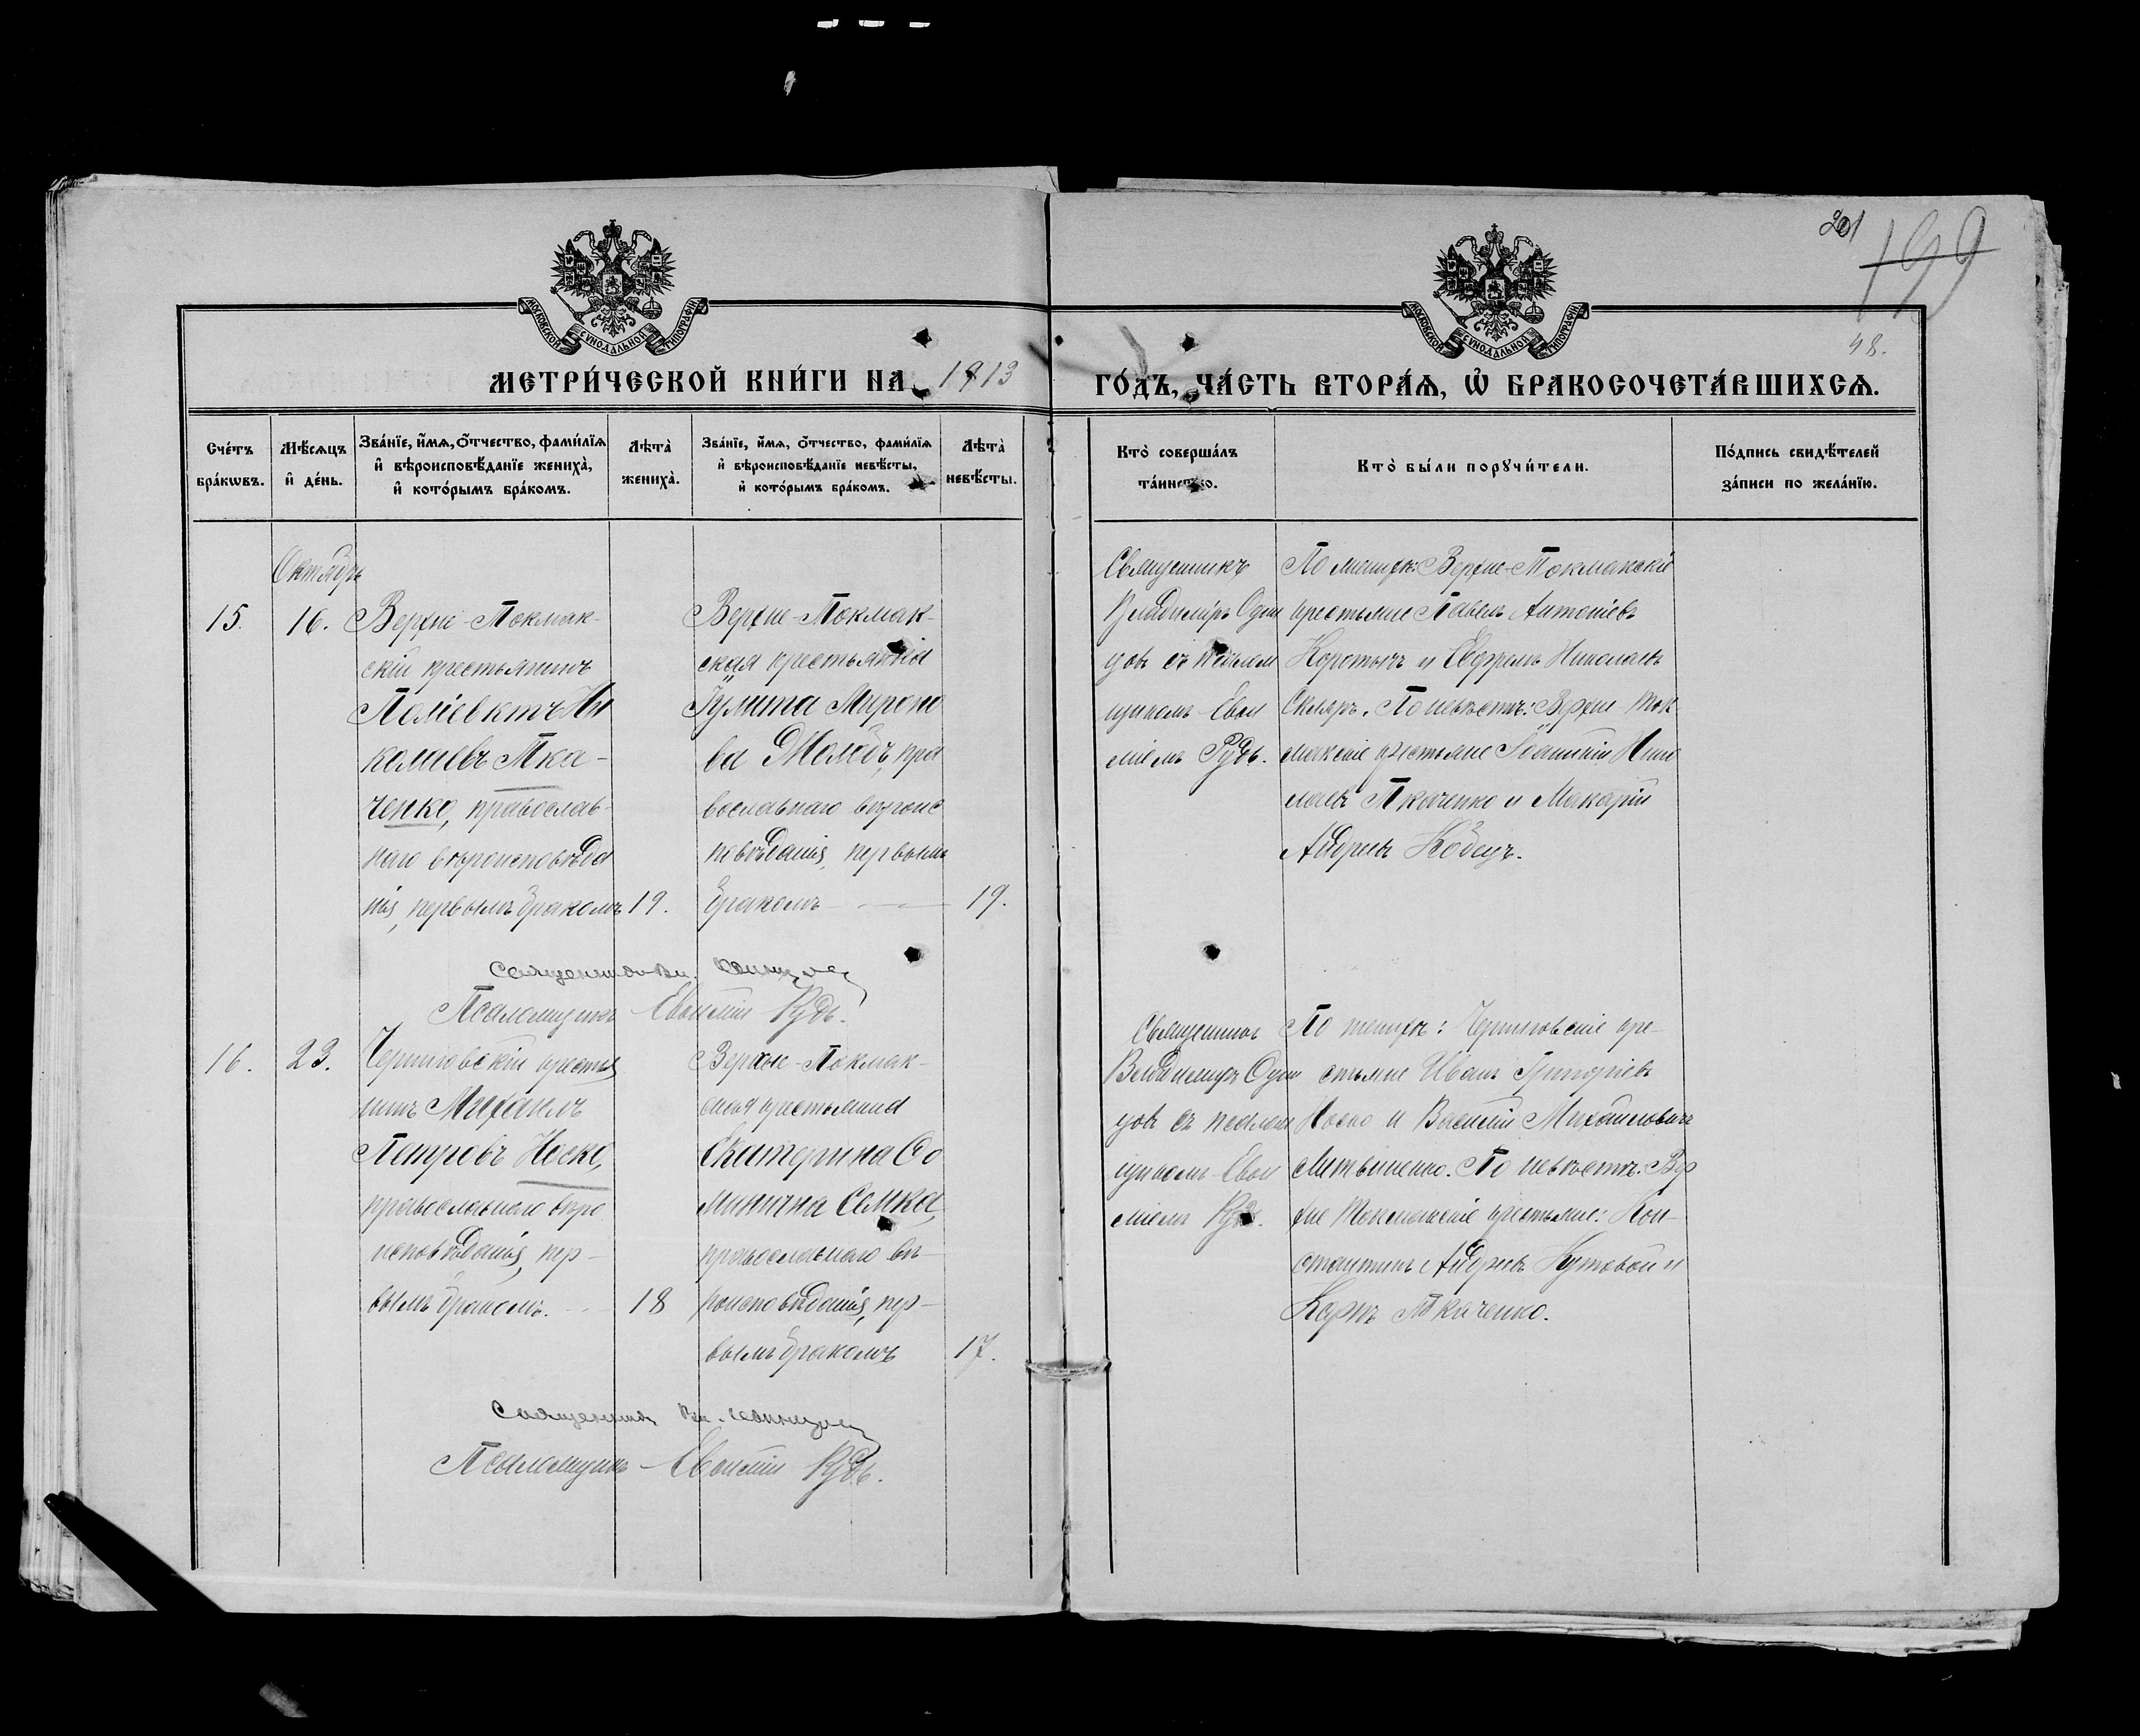 201
199
48.
МОСКОВСКОЙ СѴНОДАЛЬНОЙ ТИПОГРАФІИ
МОСКОВСКОЙ СѴНОДАЛЬНОЙ ТИПОГРАФІИ
МЕТРИ́ЧЕСКОЙ КНИ́ГИ НА 1913
ГО́ДЪ, ЧА́СТЬ ВТОРА́Я, Ѡ҆ БРАКОСОЧЕТА́ВШИХСЯ.
Сче́тъ
бра́кωвъ.
Мѣ́сяцъ
и҆ де́нь.
Зва́нїе, и҆́мя, ѻ҆́тчество, фами́лїя
и҆ вѣроисповѣ́данїе жениха̀,
и҆ кото́рымъ бра́комъ.
Лѣ́та̀
жениха̀.
Зва́нїе, и҆́мя, ѻ҆́тчество, фами́лїя
и҆ вѣроисповѣ́данїе невѣ́сты,
и҆ кото́рымъ бра́комъ.
Лѣ́та̀
невѣ́сты.
Кто̀ соверша́лъ
та́инство.
Кто̀ бы́ли порꙋчи́тели.
По́дпись свидѣ́телей
за́писи по жела́нїю.
Октябрь
15.
16.
Верхне-Токмак-
скій крестьянинъ
Поліевктъ Ни
колаевъ Тка-
ченко, православ-
наго вѣроисповѣда
нія, первымъ бракомъ
19.
Верхне-Токмак-
ская крестьянка
Іулита Мироно
ва Жолобъ, пра
вославнаго вѣроис
повѣданія, первымъ
бракомъ
19.
Священникъ
Владимиръ Один
цов съ псалом
щикомъ Евѳи
міемъ Рудь.
По женихѣ: Верхне-Токмакскіе
крестьяне Павелъ Антоніевъ
и Ефремъ Николаевъ
Скляръ. По невѣстѣ: Верхне Ток-
макскіе крестьяне Іоанникій Нико
лаевъ Ткаченко и Макарій
Андреевъ Кобецъ.
Священникъ Вл. Одинцов
Псаломщикъ Евѳимій Рудь.
16.
23.
Черниговскій крестья
нинъ Михаилъ
Петровъ Носко,
православнаго вѣро
исповѣданія, пер-
вымъ бракомъ.
18
Верхне-Токмак-
ская крестьянка
Екатерина Ѳо
минична Сомка,
православнаго вѣ-
роисповѣданія, пер-
вымъ бракомъ
17.
Священникъ
Владимиръ Один
цов съ псалом
щикомъ Евѳи
міемъ Рудь.
По женихѣ: Черниговскіе кре-
стьяне Иванъ Григоріевъ
Носко и Василій Михайловичъ
Литвиненко. По невѣстѣ: Вер
хне Токмакскіе крестьяне: Кон-
стантинъ Андреевъ Кутовой и
Карпъ Ткаченко.
Священникъ Вл. Одинцов
Псаломщикъ Евѳимій Рудь.